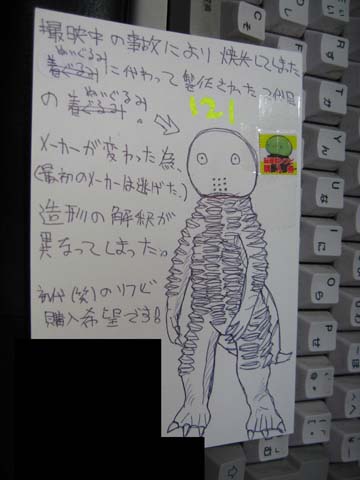 撮影中の事故により焼失してしまった
ぬいぐるみ
着ぐるみに代わって製作された2代目
の着ぐるみ。
ぬいぐるみ
121
メーカーが変わった為、
(最初のメーカーは逃げた。)
造形の解釈が
異なってしまった。
初代(笑)のソフビ
購入希望です!